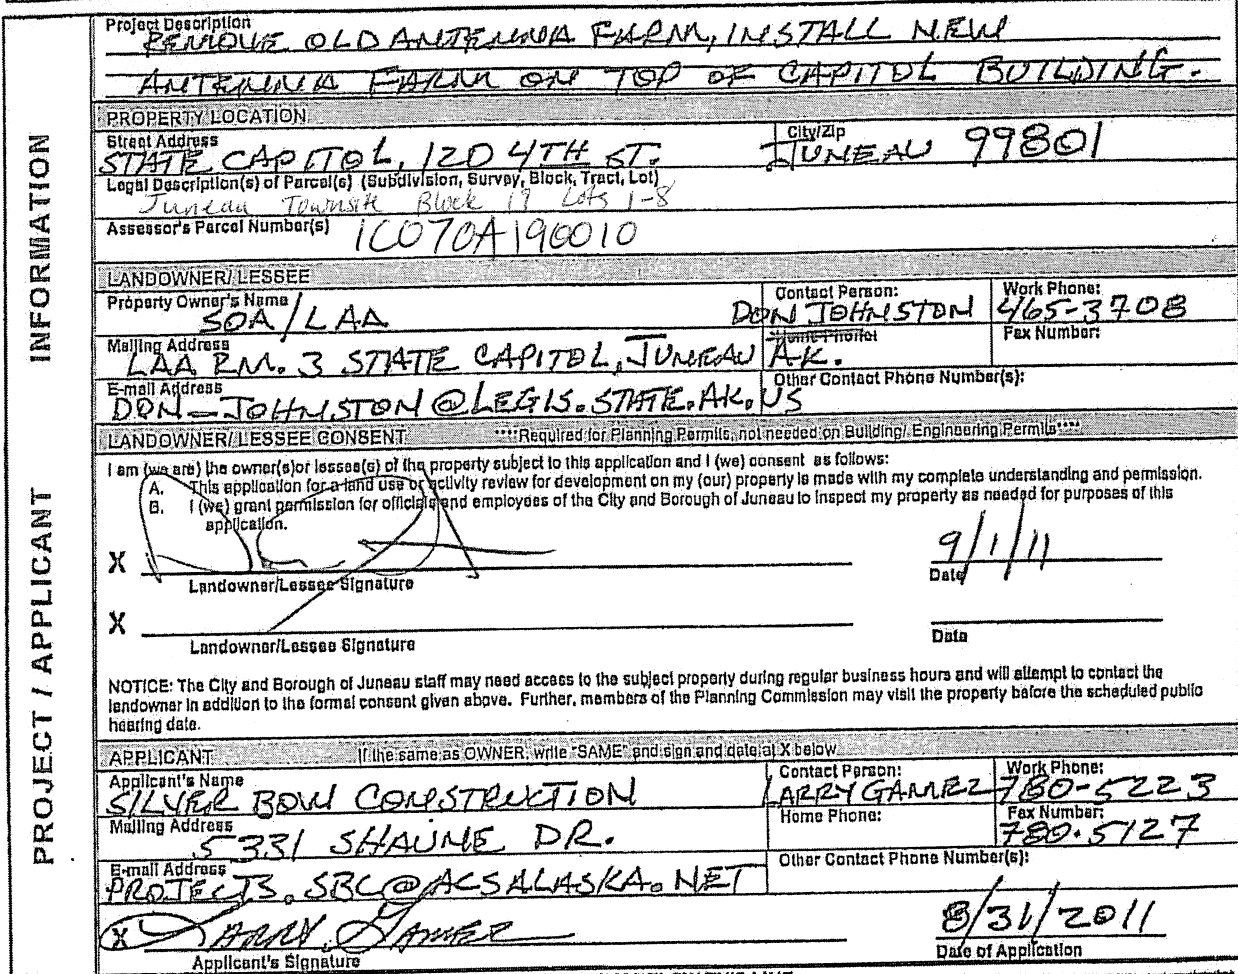 Project Description
REMOVE OLD ANTENNA FARM, INSTALL NEW
ANTENNA FARM ON TOP OF CAPITOL BUILDING.
PROPERTY LOCATION
Street Address
City/Zip
STATE CAPITOL, 120 4TH ST.
JUNEAU 99801
Legal Description(s) of Parcel(s) (Subdivision, Survey, Block, Tract, Lot)
Juneau Townsite Block 19 Lots 1-8
Assessor's Parcel Number(s)
1C070A190010
LANDOWNER/ LESSEE
Property Owner's Name
Contact Person:
Work Phone:
SOA/LAA
DON JOHNSTON
465-3708
Mailing Address
Home Phone:
Fax Number:
LAA RM. 3 STATE CAPITOL, JUNEAU AK.
E-mail Address
Other Contact Phone Number(s):
DON_JOHNSTON@LEGIS.STATE.AK.US
LANDOWNER/ LESSEE CONSENT ****Required for Planning Permits, not needed on Building/ Engineering Permits****
I am (we are) the owner(s)or lessee(s) of the property subject to this application and I (we) consent as follows:
A. This application for a land use or activity review for development on my (our) property is made with my complete understanding and permission.
B. I (we) grant permission for officials and employees of the City and Borough of Juneau to inspect my property as needed for purposes of this
application.
X
9/1/11
Landowner/Lessee Signature
Date
X
Landowner/Lessee Signature
Date
NOTICE: The City and Borough of Juneau staff may need access to the subject property during regular business hours and will attempt to contact the
landowner in addition to the formal consent given above. Further, members of the Planning Commission may visit the property before the scheduled public
hearing date.
APPLICANT If the same as OWNER, write "SAME" and sign and date at X below
Applicant's Name
Contact Person:
Work Phone:
SILVER BOW CONSTRUCTION
LARRY GAMEZ
780-5223
Mailing Address
Home Phone:
Fax Number:
5331 SHAUNE DR.
780-5127
E-mail Address
Other Contact Phone Number(s):
PROJECTS.SBC@ACSALASKA.NET
X LARRY GAMEZ
8/31/2011
Applicant's Signature
Date of Application
PROJECT / APPLICANT INFORMATION